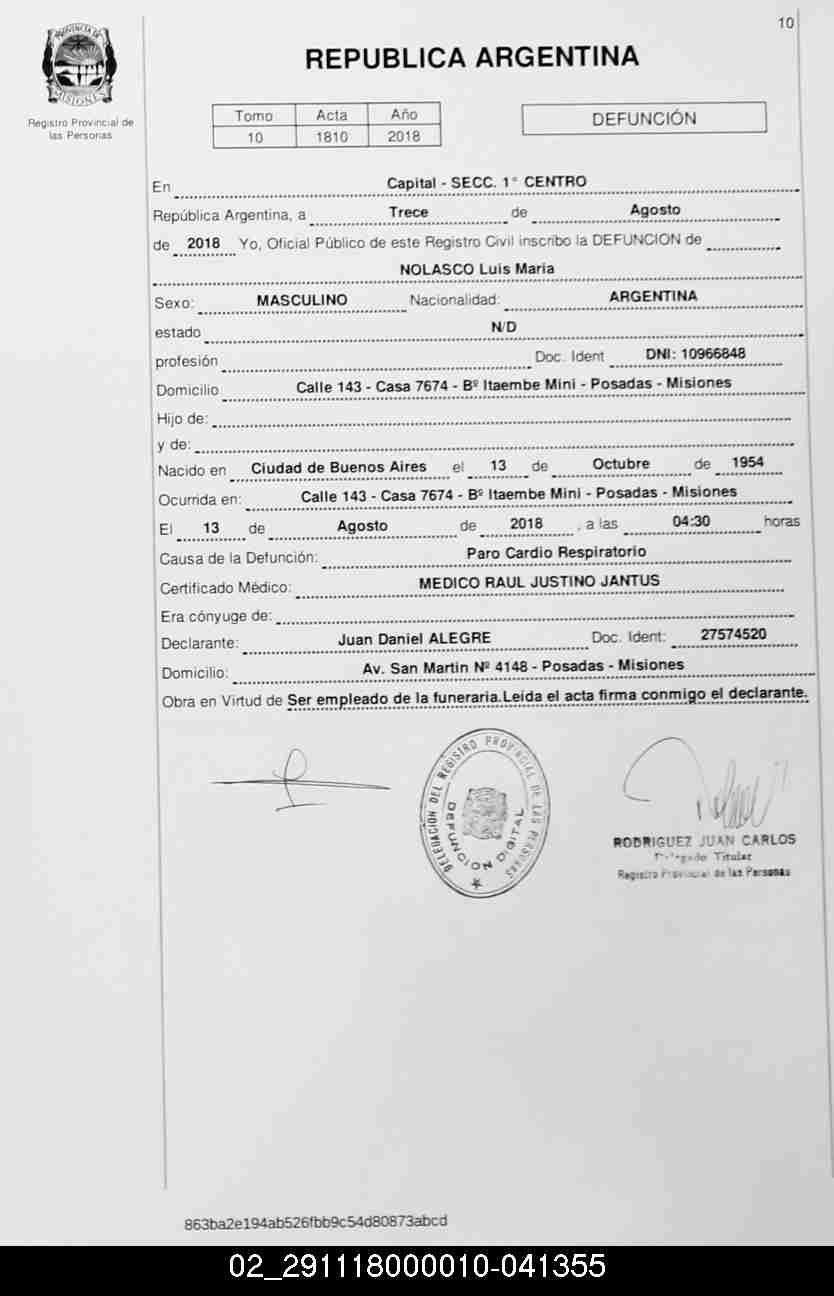 10
PROVINCIA DE
MISIONES
Registro Provincial de
las Personas
REPUBLICA ARGENTINA
Tomo Acta Año
10 1810 2018
DEFUNCIÓN
En Capital - SECC. 1° CENTRO
República Argentina, a Trece de Agosto
de 2018 Yo, Oficial Público de este Registro Civil inscribo la DEFUNCION de
NOLASCO Luis Maria
Sexo: MASCULINO Nacionalidad: ARGENTINA
estado N/D
profesión Doc. Ident DNI: 10966848
Domicilio Calle 143 - Casa 7674 - Bº Itaembe Mini - Posadas - Misiones
Hijo de:
y de:
Nacido en Ciudad de Buenos Aires el 13 de Octubre de 1954
Ocurrida en: Calle 143 - Casa 7674 - Bº Itaembe Mini - Posadas - Misiones
El 13 de Agosto de 2018 , a las 04:30 horas
Causa de la Defunción: Paro Cardio Respiratorio
Certificado Médico: MEDICO RAUL JUSTINO JANTUS
Era cónyuge de:
Declarante: Juan Daniel ALEGRE Doc. Ident: 27574520
Domicilio: Av. San Martin Nº 4148 - Posadas - Misiones
Obra en Virtud de Ser empleado de la funeraria.Leida el acta firma conmigo el declarante.
DELEGACION DEL REGISTRO PROVINCIAL DE LAS PERSONAS
DEFUNCION DIGITAL
RODRIGUEZ JUAN CARLOS
Delegado Titular
Registro Provincial de las Personas
863ba2e194ab526fbb9c54d80873abcd
02_291118000010-041355